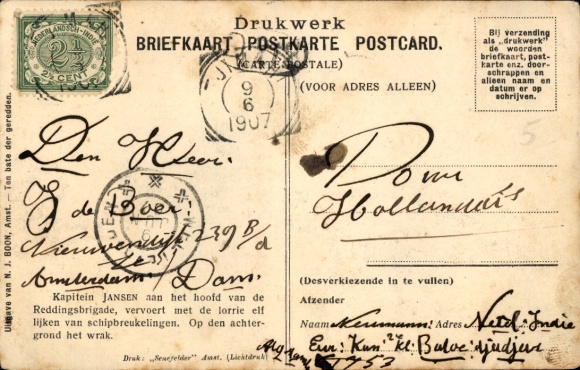 Drukwerk
BRIEFKAART. POSTKARTE. POSTCARD.
(CARTE POSTALE)
(VOOR ADRES ALLEEN)
Bij verzending
als „drukwerk”
de woorden
briefkaart, post-
karte enz. door-
schrappen en
alleen naam en
datum er op
schrijven.
NEDERLANDSCH-INDIË
2½
2½ CENT
9
6
1907
Den Heer.
de Boer
239 B/d
Amsterdam. Dam.
Kapitein JANSEN aan het hoofd van de
Reddingsbrigade, vervoert met de lorrie elf
lijken van schipbreukelingen. Op den achter-
grond het wrak.
Druk: „Senefelder” Amst. (Lichtdruk)
Uitgave van N. J. BOON, Amst. — Ten bate der geredden.
5
Door
(Desverkiezende in te vullen)
Afzender
Naam Neumann. Adres Ned. Indie
Eur: Kan: 2e kl: